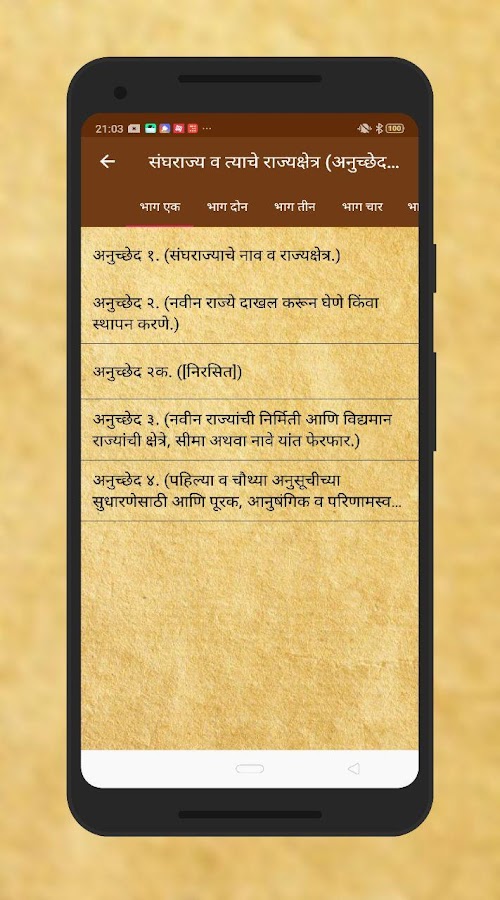 21:03
100
संघराज्य व त्याचे राज्यक्षेत्र (अनुच्छेद...
भाग एक भाग दोन भाग तीन भाग चार भा
अनुच्छेद १. (संघराज्याचे नाव व राज्यक्षेत्र.)
अनुच्छेद २. (नवीन राज्ये दाखल करून घेणे किंवा
स्थापन करणे.)
अनुच्छेद २क. ([निरसित])
अनुच्छेद ३. (नवीन राज्यांची निर्मिती आणि विद्यमान
राज्यांची क्षेत्रे, सीमा अथवा नावे यांत फेरफार.)
अनुच्छेद ४. (पहिल्या व चौथ्या अनुसूचीच्या
सुधारणेसाठी आणि पूरक, आनुषंगिक व परिणामस्व...